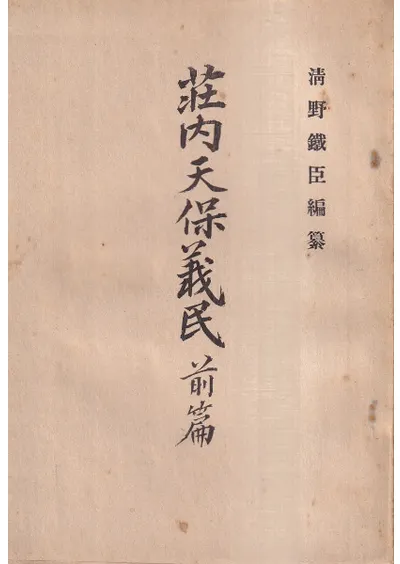 清野鐵臣編纂
荘内天保義民 前篇